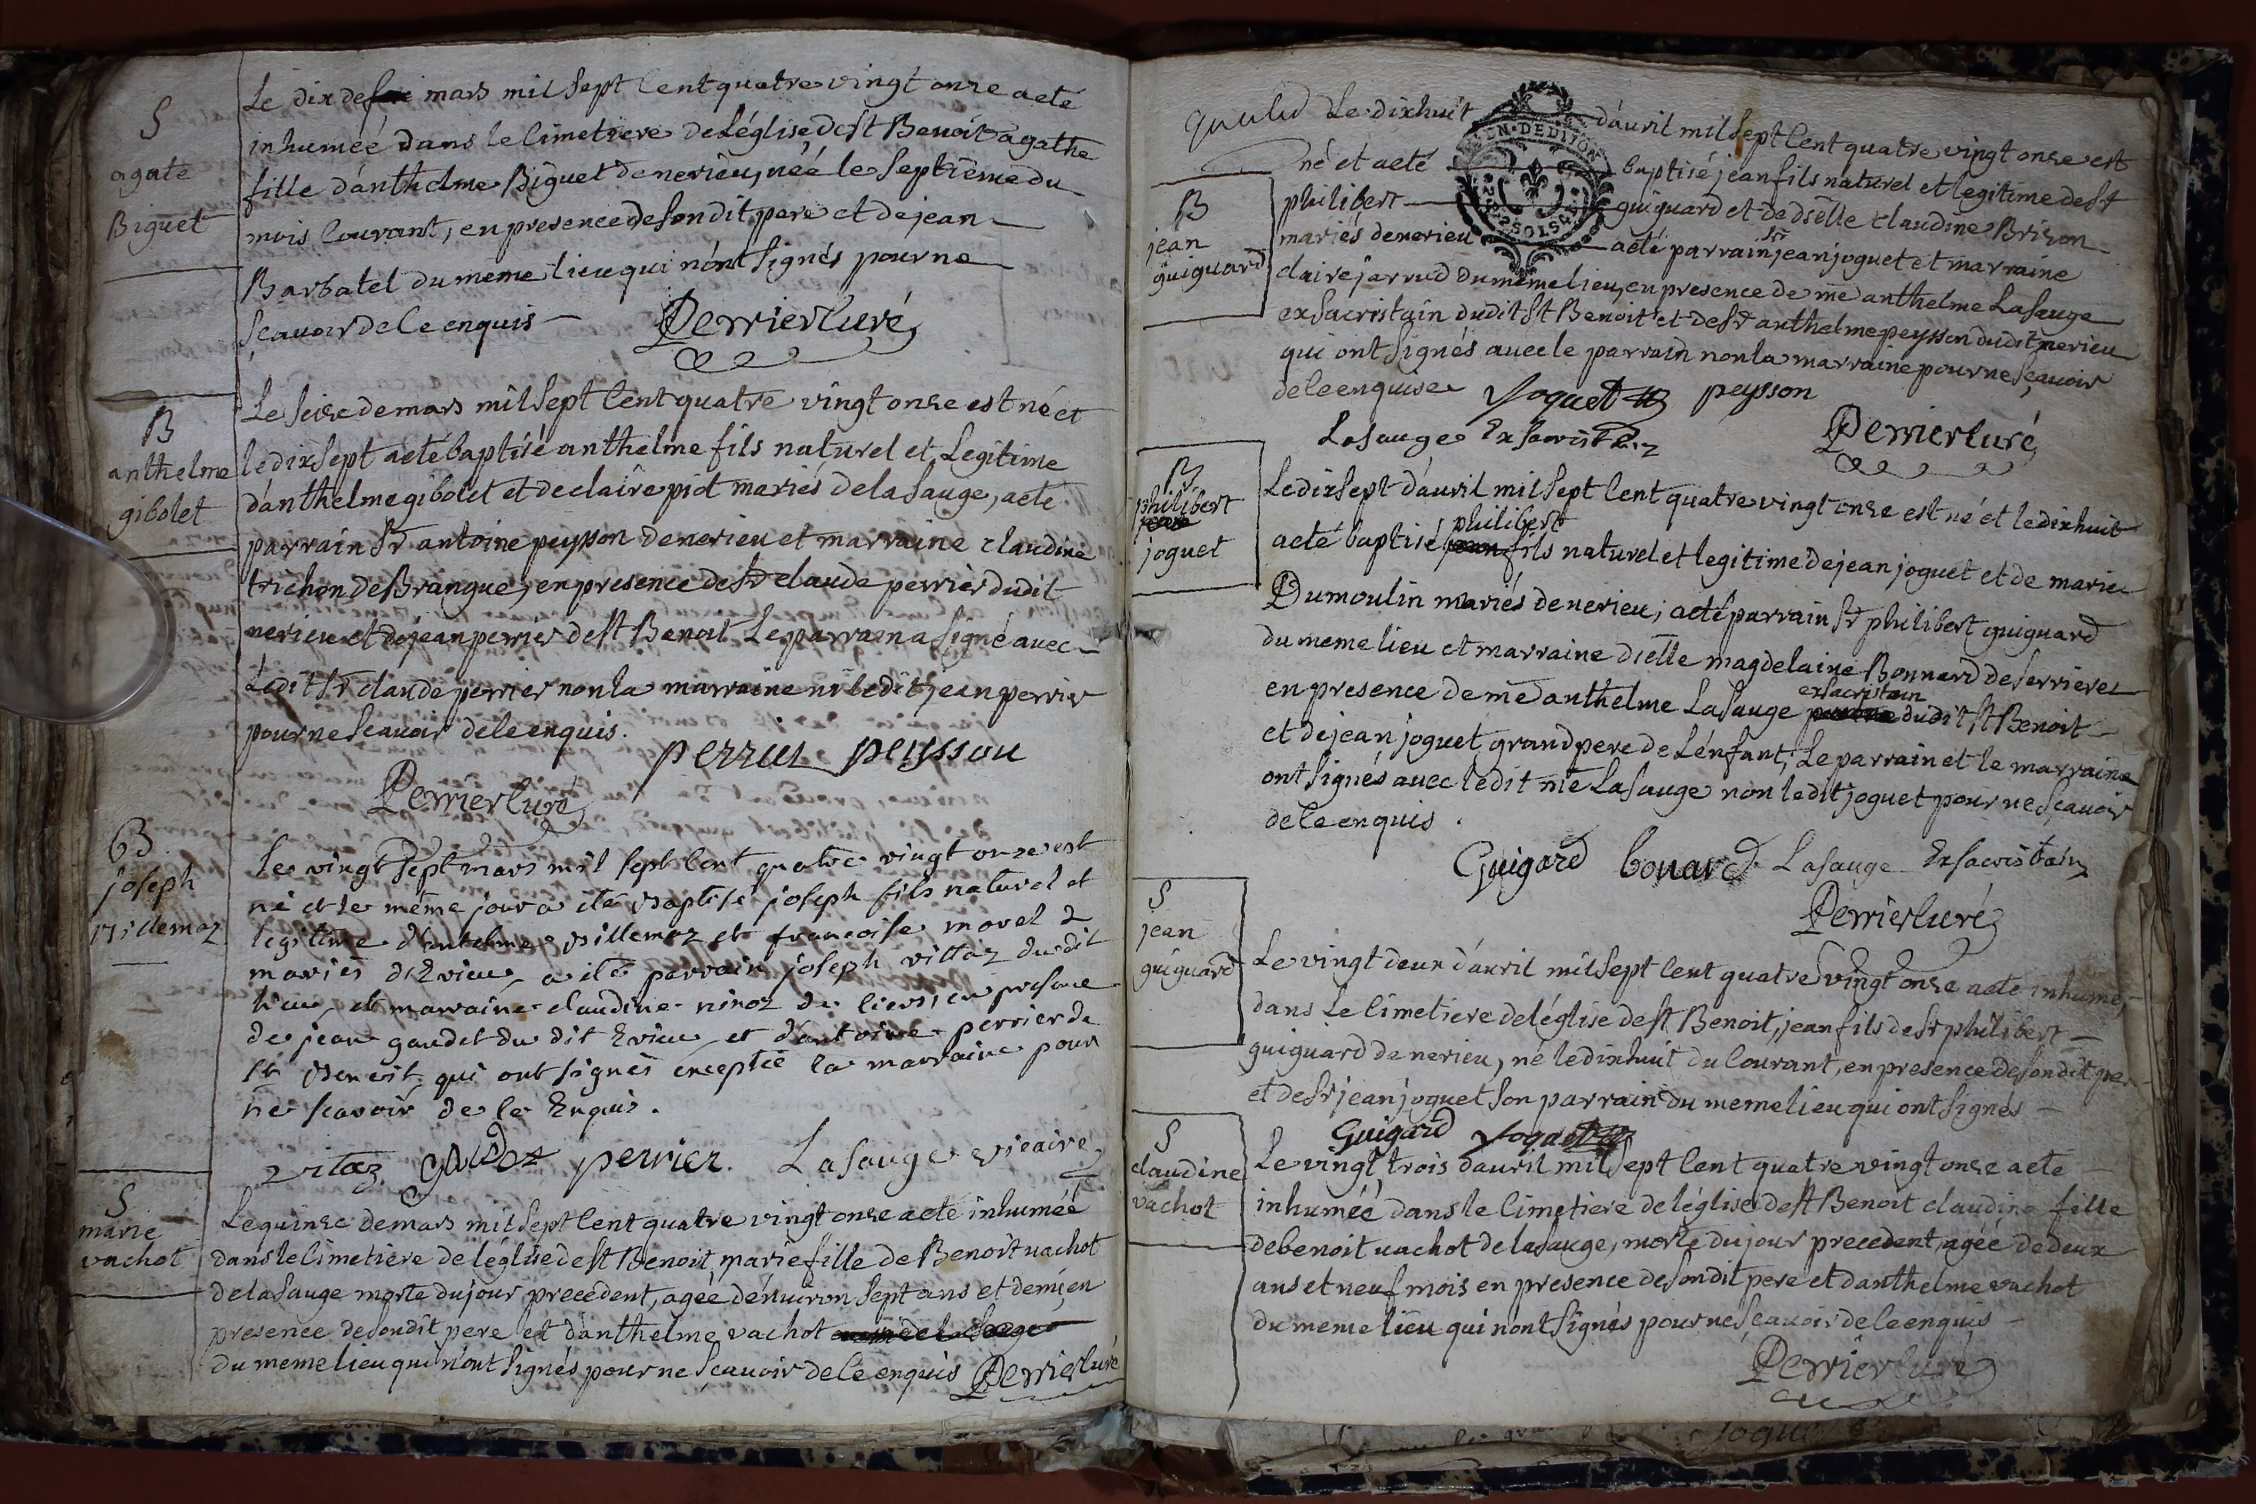 S
agate
Biguet
Le dix de mars mil sept cent quatre vingt onze aeté
inhumée dans le cimetiere de l'église de st Benoit agathe
fille d'anthelme Biguet de nerieu, née le septième du
mois courant, en presence de son dit pere et de jean
Barbatel du même lieu qui n'ont signés pour ne
scavoir de ce enquis
Perrier curé
B
anthelme
gibolet
Le seize de mars mil sept cent quatre vingt onze est né et
le dixsept aeté baptisé anthelme fils naturel et Legitime
d'anthelme gibolet et de claire piot mariés de la sauge, aeté
parrain sr antoine peysson de nerieu et marraine claudine
trichon de Brangue, en presence de sr claude perrier dudit
nerieu et de jean perrier de st Benoit Le parrain a signé avec
Ledit sr claude perrier non la marraine ni ledit jean perrier
pour ne scavoir de ce enquis.
perrier peysson
Perrier curé
B
joseph
villemaz
Le vingt sept mars mil sept cent quatre vingt onze est
né et le même jour a été Baptisé joseph fils naturel et
legitime d'antelme villemaz et francoise morel
mariés d'Evieu, a été parrain joseph vittaz du dit
lieu, et marraine claudine ninoz de liers, en presence
de jean gaudet du dit Evieu et d'antoine perrier de
st Benoit qui ont signés exceptée la marraine pour
ne scavoir de ce Enquis.
vitaz gaudet perrier. Lasauge vicaire
S
marie
vachot
Le quinze de mars mil sept cent quatre vingt onze aeté inhumée
dans le cimetiere de l'église de st Benoit, marie fille de Benoit vachot
de la sauge morte du jour precedent, agée d'environ sept ans et demi, en
presence de son dit pere et d'anthelme vachot
du meme lieu qui n'ont signés pour ne scavoir de ce enquis Perrier curé
B
jean
guiguard
Le dixhuit d'avril mil sept cent quatre vingt onze est
né et aeté baptisé jean fils naturel et legitime de sr
philibert guiguard et de dselle claudine Brizon
mariés de nerieu aeté parrain sr jean joguet et marraine
claire jarrud du même lieu, en presence de me anthelme Lasauge
exsacristain dudit st Benoit et de sr anthelme peysson dudit nerieu
qui ont signés avec le parrain non la marraine pour ne scavoir
de ce enquise Joguet peysson
Lasauge Exsacristain
Perrier curé
B
philibert
jean
joguet
Le dixsept d'avril mil sept cent quatre vingt onze est né et le dixhuit
philibert
aeté baptisé jean fils naturel et legitime de jean joguet et de marie
Dumoulin mariés de nerieu, aeté parrain sr philibert guiguard
du meme lieu et marraine dlelle magdelaine Bonnard de serrieres
exsacristain
en presence de me anthelme Lasauge dudit st Benoit
et de jean joguet grand pere de L'enfant; Le parrain et le marraine
ont signés avec ledit me Lasauge non ledit joguet pour ne scavoir
de ce enquis.
Guigard bonard Lasauge Exsacristain
Perrier curé
S
jean
guiguard
Le vingt deux d'avril mil sept cent quatre vingt onze aeté inhumé,
dans Le cimetiere de l'église de st Benoit, jean fils de sr philibert
guiguard de nerieu, né le dixhuit du courant, en presence de son dit pere
et de sr jean joguet son parrain du meme lieu qui ont signés
Guigard Joguet
S
claudine
vachot
Le vingt trois d'avril mil sept cent quatre vingt onze aeté
inhumée dans le cimetiere de l'église de st Benoit claudine fille
de benoit vachot de la sauge, morte du jour precedent, agée de deux
ans et neuf mois en presence de son dit pere et d'anthelme vachot
du meme lieu qui n'ont signés pour ne scavoir de ce enquis
Perrier curé